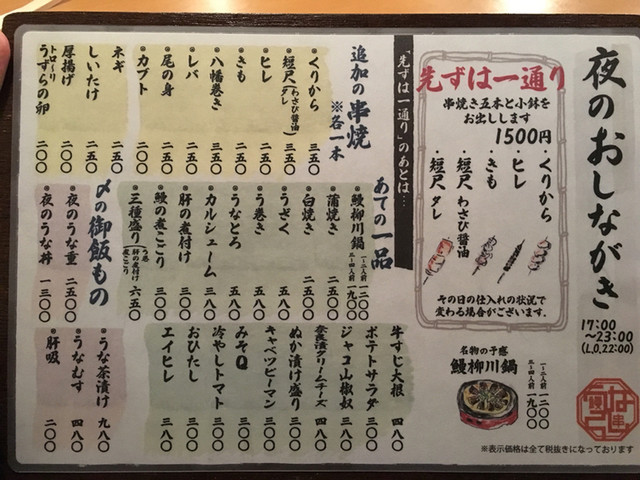 夜のおしながき
17:00
~23:00
(L.O.22:00)
先ずは一通り
串焼き五本と小鉢を
お出しします
1500円
・くりから
・ヒレ
・きも
・短尺 わさび醤油
・短尺 タレ
その日の仕入れの状況で
変わる場合がございます。
名物の予感
鰻柳川鍋
一~二人前 一二〇〇
三~四人前 一九〇〇
「先ずは一通り」のあとは…
追加の串焼
※各一本
くりから 三五〇
短尺(わさび醤油/タレ) 三五〇
ヒレ 二五〇
きも 二五〇
八幡巻き 三五〇
レバ 二五〇
尾の身 二〇〇
カブト 二〇〇
ネギ 二五〇
しいたけ 二五〇
厚揚げ 二〇〇
トロ~リ
うずらの卵 二〇〇
あての一品
鰻柳川鍋 一~二人前 一二〇〇
三~四人前 一九〇〇
蒲焼き 二五〇〇
白焼き 二五〇〇
うざく 五八〇
う巻き 五八〇
うなとろ 五八〇
カルシューム 三八〇
肝の煮付け 三〇〇
鰻の煮こごり 三〇〇
三種盛り(う巻 肝の煮付け 煮こごり) 六五〇
〆の御飯もの
夜のうな重 二五〇〇
夜のうな丼 一三〇〇
うな茶漬け 九八〇
うなむす 四八〇
肝吸 二〇〇
牛すじ大根 四八〇
ポテトサラダ 三八〇
ジャコ山椒奴 三八〇
奈良漬クリームチーズ 四八〇
ぬか漬け盛り 三〇〇
キャベツピーマン 三〇〇
みそQ 三〇〇
冷やしトマト 三〇〇
おひたし 三八〇
エイヒレ 三八〇
※表示価格は全て税抜きになっております